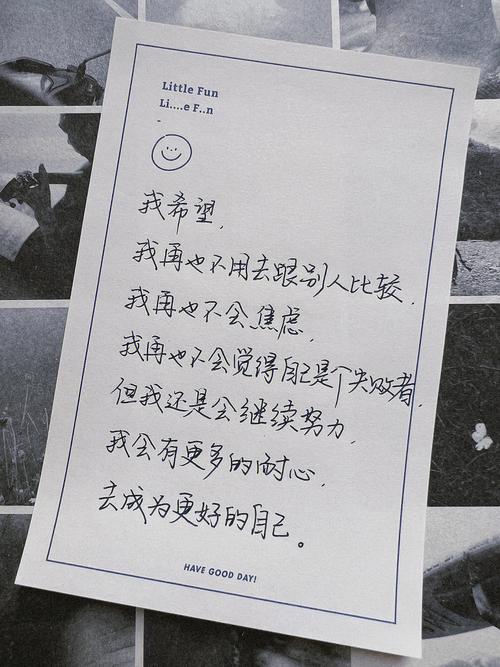 Little Fun
Li....e F..n
-
我希望,
我再也不用去跟别人比较,
我再也不会焦虑,
我再也不会觉得自己是个失败者,
但我还是会继续努力,
我会有更多的耐心,
去成为更好的自己。
HAVE GOOD DAY!